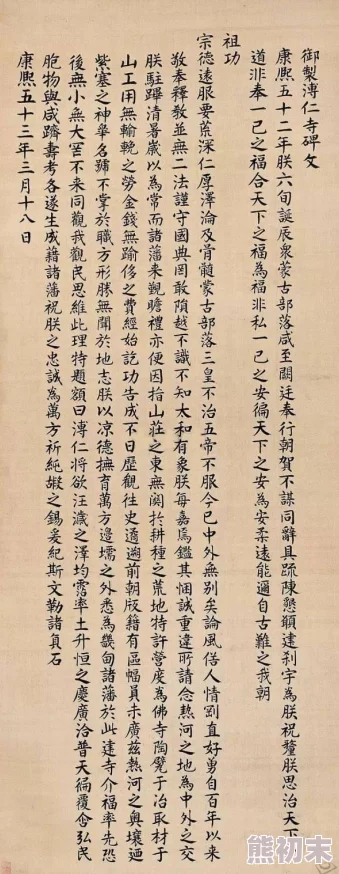 御製溥仁寺碑文
康熙五十二年朕六旬誕辰衆蒙古部落咸至闕廷奉行朝賀不謀同辭具疏陳懇願建刹宇為朕祝釐朕思治天下
道非奉一己之福合天下之福為福非私一己之安徧天下之安為安柔遠能邇自古難之我朝
祖功
宗德遠服要荒深仁厚澤淪及骨髓蒙古部落三皇不治五帝不服今已中外無別矣論風俗人情剛直好勇自百年以來
敬奉釋教並無二法謹守國典罔敢隕越不識不知太和有象朕每嘉焉鑑其悃誠重違所請念熱河之地為中外之交
朕駐蹕清暑歲以為常而諸藩來覲瞻禮亦便因指山莊之東無關於耕種之荒地特許營度為佛寺陶甓于冶取材于
山工用無輸輓之勞金錢無踰侈之費經始訖功告成不日歷觀往史適逾前朝版籍有區幅員未廣茲熱河之奧壤迴
紫塞之神皋名號不掌於職方形勝無聞於地志朕以涼德撫育萬方邊壖之外悉為畿甸諸藩於此建寺介福率先恐
後無小無大罔不來同觀我觀民思維此理特題額曰溥仁將欲汪濊之澤均霑率土升恒之慶廣洽普天徧覆含弘民
胞物與咸躋壽考各遂生成藉諸藩祝朕之忠誠為萬方祈純嘏之錫爰紀斯文勒諸貞石
康熙五十三年三月十八日
熊初末